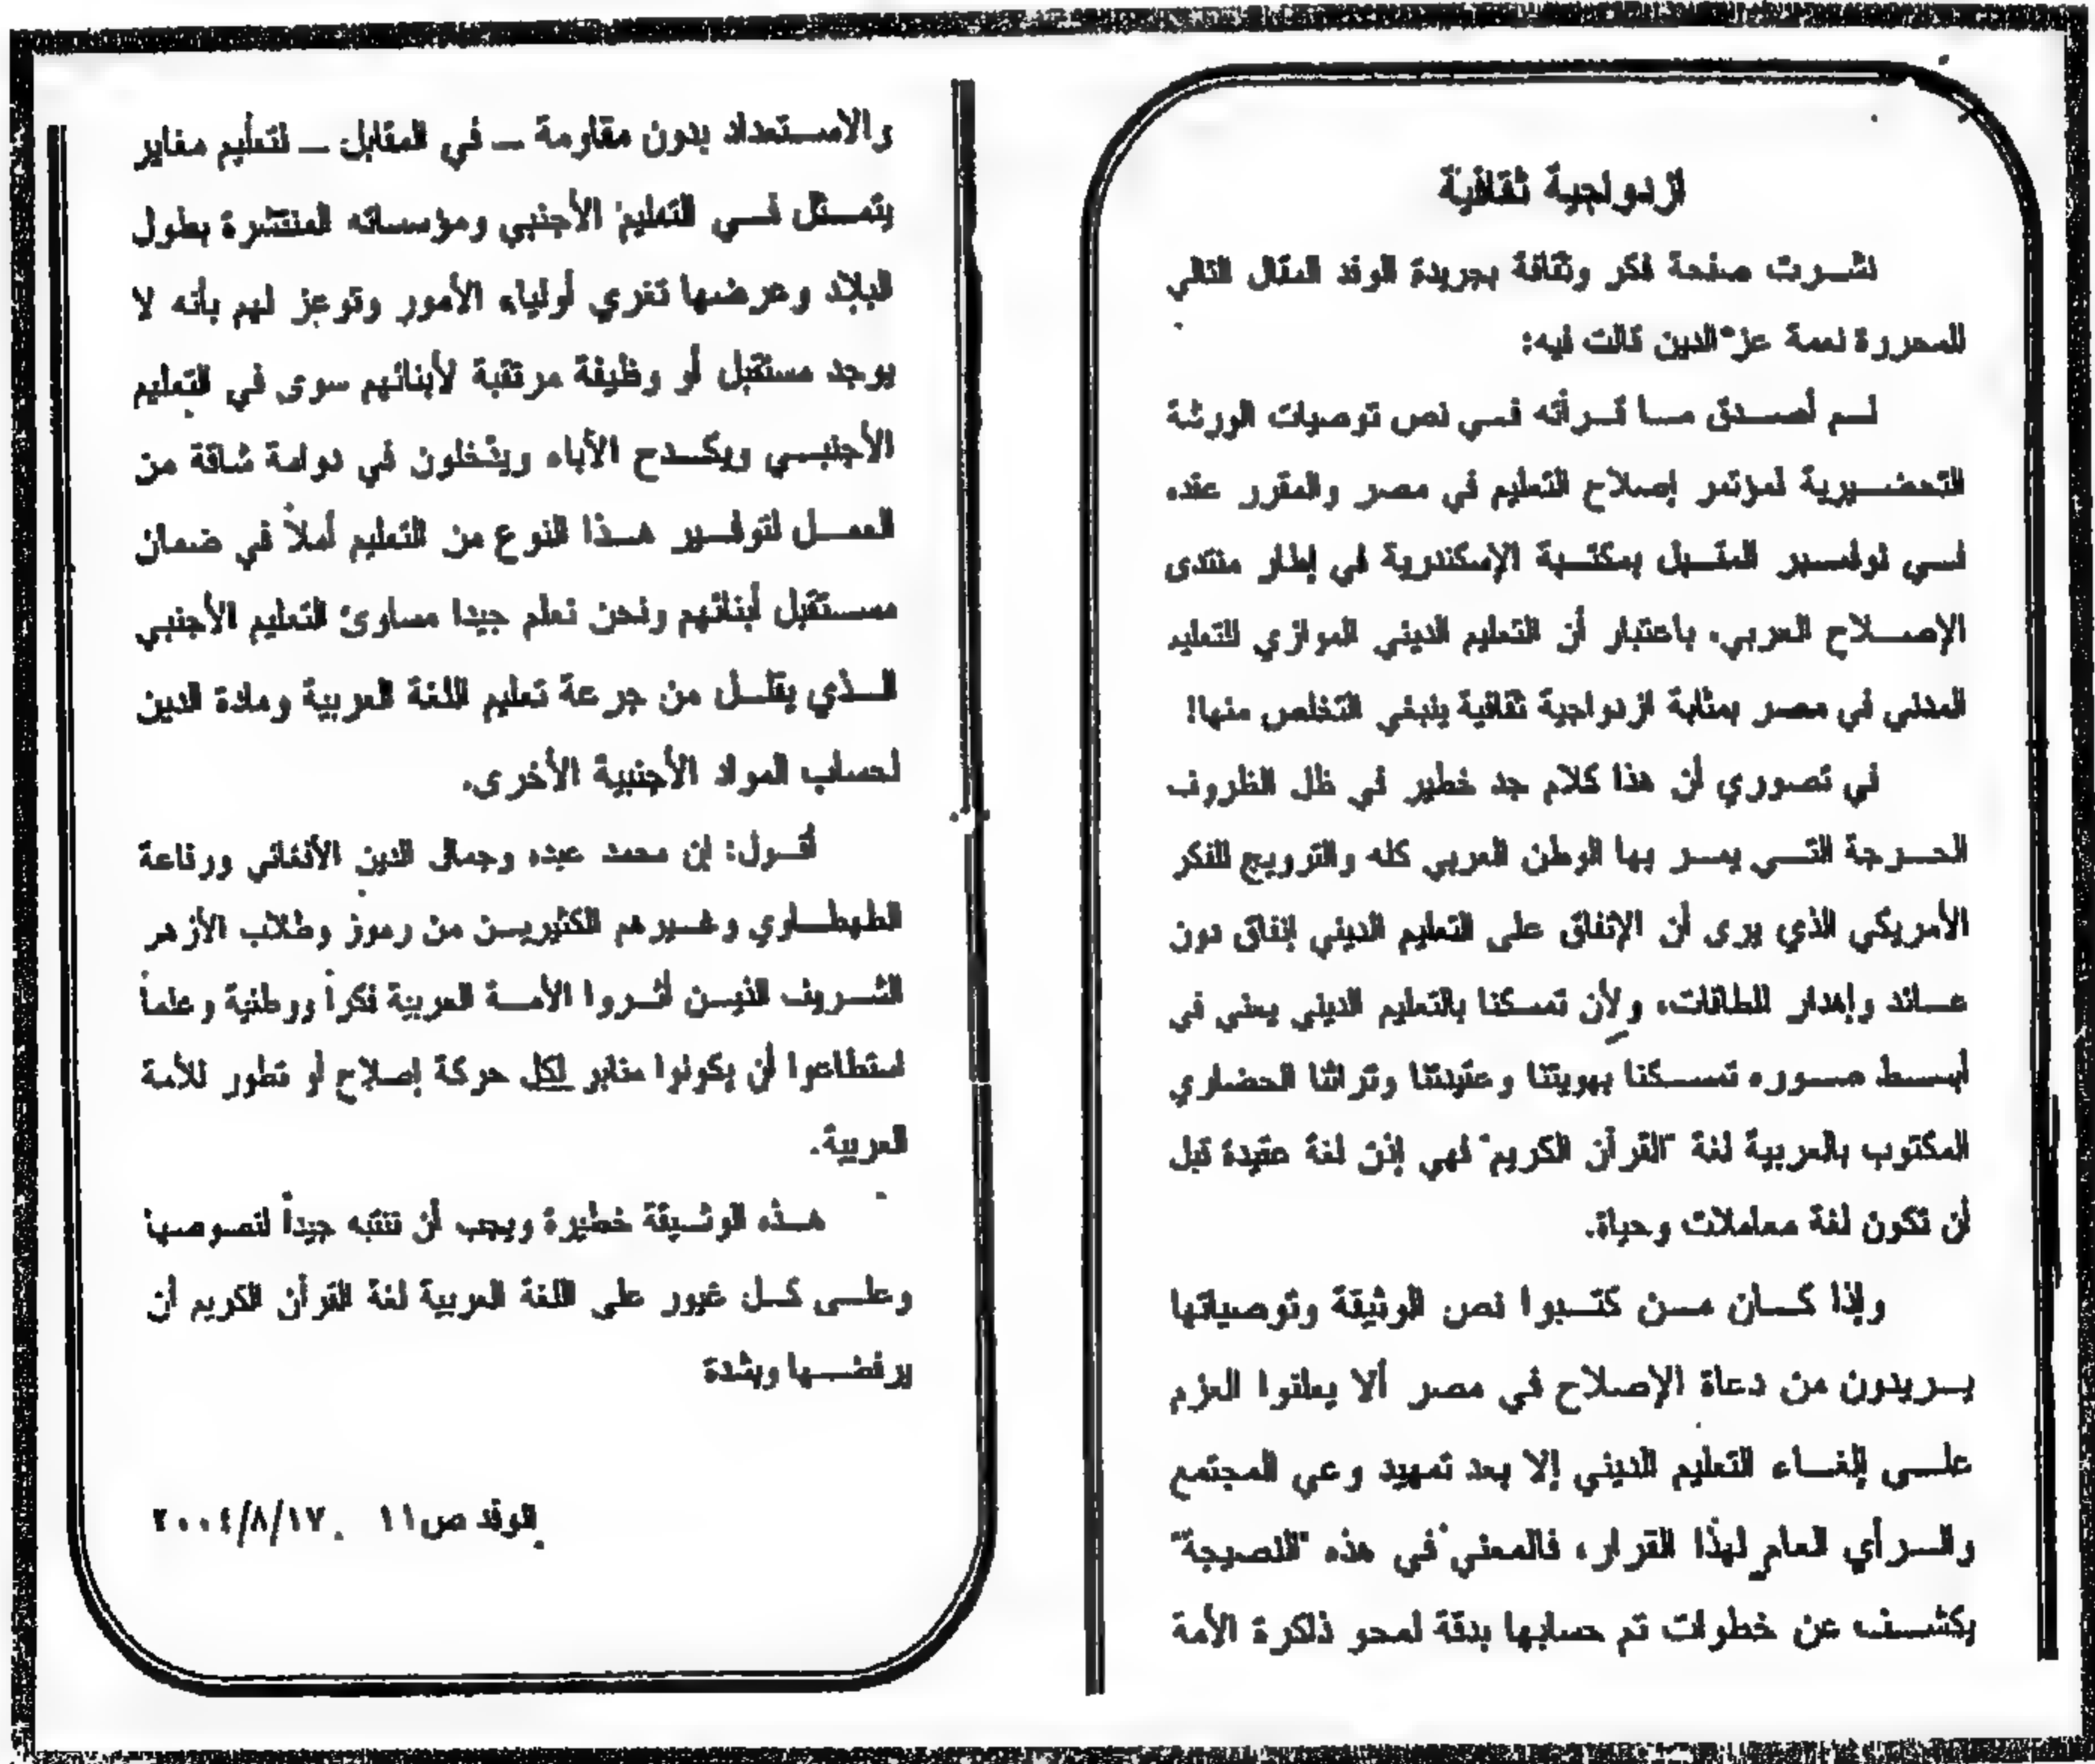 ازدواجية ثقافية
نشرت صفحة فكر وثقافة بجريدة الوفد المقال التالي
للمحررة نعمة عز الدين قالت فيه:
لم أصدق ما قرأته في نص توصيات الورشة
التحضيرية لمؤتمر إصلاح التعليم في مصر والمقرر عقده
في نوفمبر المقبل بمكتبة الإسكندرية في إطار منتدى
الإصلاح العربي، باعتبار أن التعليم الديني الموازي للتعليم
المدني في مصر بمثابة ازدواجية ثقافية ينبغي التخلص منها!
في تصوري أن هذا كلام جد خطير في ظل الظروف
الحرجة التي يمر بها الوطن العربي كله والترويج للفكر
الأمريكي الذي يرى أن الإنفاق على التعليم الديني إنفاق دون
عائد وإهدار للطاقات، ولأن تمسكنا بالتعليم الديني يعني في
أبسط صوره تمسكنا بهويتنا وعقيدتنا وتراثنا الحضاري
المكتوب بالعربية لغة "القرآن الكريم" فهي إذن لغة عقيدة قبل
أن تكون لغة معاملات وحياة.
وإذا كان من كتبوا نص الوثيقة وتوصياتها
يريدون من دعاة الإصلاح في مصر ألا يعلنوا العزم
على إلغاء التعليم الديني إلا بعد تمهيد وعي المجتمع
والرأي العام لهذا القرار، فالمعني في هذه "النصيحة"
يكشف عن خطوات تم حسابها بدقة لمحو ذاكرة الأمة
والاستعداد بدون مقاومة - في المقابل - لتعليم مغاير
يتمثل في التعليم الأجنبي ومؤسساته المنتشرة بطول
البلاد وعرضها تغري أولياء الأمور وتوعز لهم بأنه لا
يوجد مستقبل أو وظيفة مرتقبة لأبنائهم سوى في التعليم
الأجنبي ويكدح الأباء ويدخلون في دوامة شاقة من
العمل لتوفير هذا النوع من التعليم أملاً في ضمان
مستقبل أبنائهم ونحن نعلم جيدا مساوئ التعليم الأجنبي
الذي يقلل من جرعة تعليم اللغة العربية ومادة الدين
لحساب المواد الأجنبية الأخرى.
أقول: إن محمد عبده وجمال الدين الأفغاني ورفاعة
الطهطاوي وغيرهم الكثيرين من رموز وطلاب الأزهر
الشريف الذين أثروا الأمة العربية فكراً ووطنية وعلماً
استطاعوا أن يكونوا منابر لكل حركة إصلاح أو تطور للأمة
العربية.
هذه الوثيقة خطيرة ويجب أن ننتبه جيداً لنصوصها
وعلى كل غيور على اللغة العربية لغة القرآن الكريم أن
يرفضها وبشدة
الوفد ص١١ ٢٠٠٤/٨/١٧